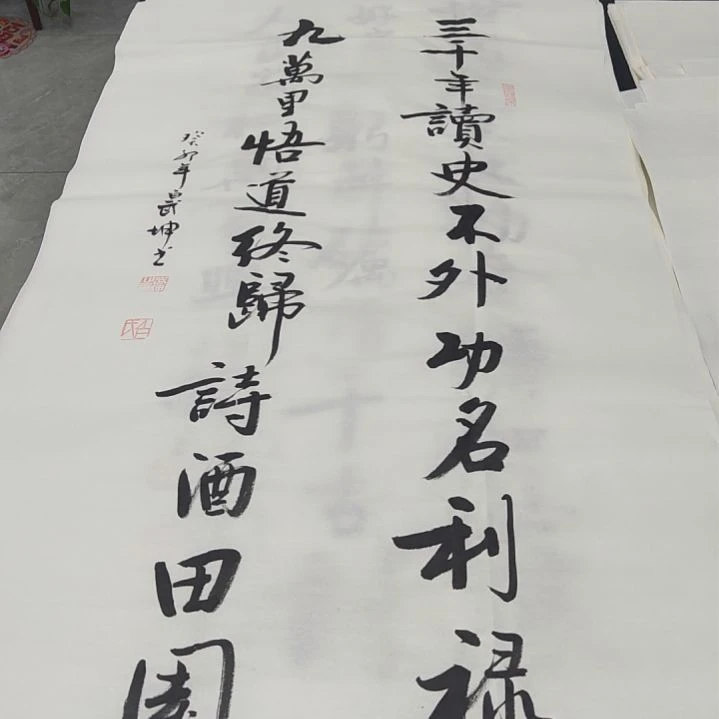 三十年讀史不外功名利禄
九萬里悟道終歸詩酒田園
癸卯年晨坤书